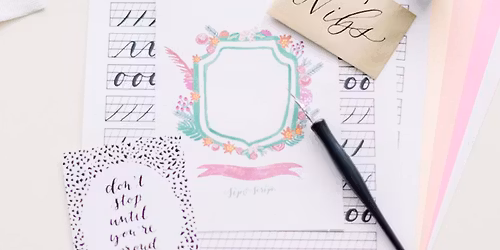 Nibs
don't
stop
until
you're
proud